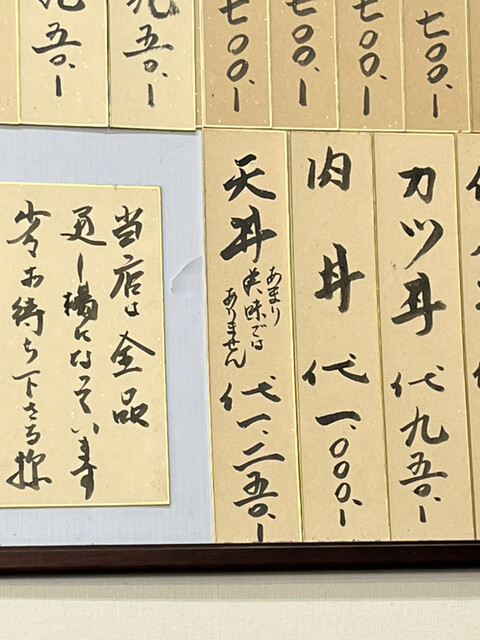 七〇〇、ー
七〇〇、ー
七〇〇、ー
七〇〇、ー
九五〇、ー
九五〇、ー
カツ丼 代九五〇、ー
肉丼 代一、〇〇〇、ー
天丼 あまり
美味では
ありません 代一、二五〇、ー
当店は全品
直し揚になっています
少々お待ち下さる様